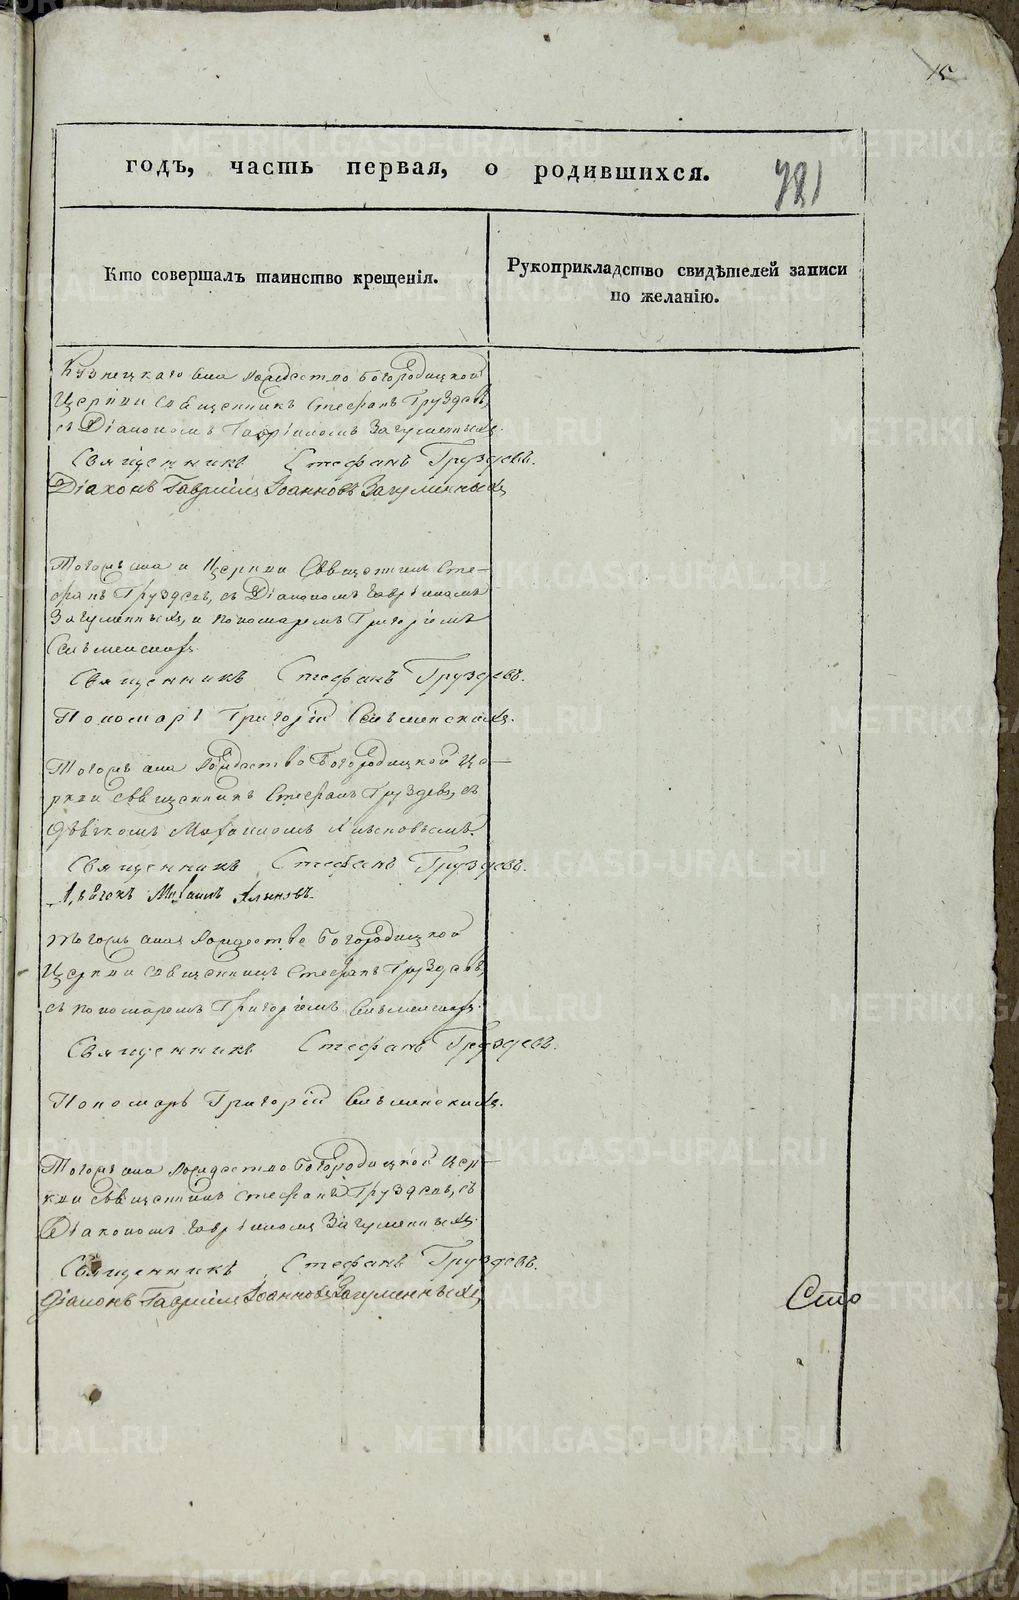 15
годъ, часть первая, о родившихся. 781
Кто совершалъ таинство крещенія.
Рукоприкладство свидѣтелей записи
по желанію.
Кузнецкаго Рождество Богородицкой
Церкви священникъ Стефанъ Груздевъ,
съ Діакономъ Гавріиломъ Загуменныхъ.
Священникъ Стефанъ Груздевъ.
Діаконъ Гавріилъ Іоанновъ Загуменныхъ
Тогожъ и Церкви Священникъ Сте-
фанъ Груздевъ, съ Діакономъ Гавріиломъ
Загуменныхъ, и пономаремъ Григоріемъ
Священникъ Стефанъ Груздевъ.
Пономарь Григорій
Тогожъ Рождество Богородицкой Це-
ркви священникъ Стефанъ Груздевъ, съ
дьячкомъ Михаиломъ
Священникъ Стефанъ Груздевъ.
Дьячекъ Михаилъ
Тогожъ Рождество Богородицкой
Церкви священникъ Стефанъ Груздевъ,
съ пономаремъ Григоріемъ
Священникъ Стефанъ Груздевъ.
Пономарь Григорій
Тогожъ Рождество Богородицкой Цер-
кви священникъ Стефанъ Груздевъ, съ
Діакономъ Гавріиломъ Загуменныхъ.
Священникъ Стефанъ Груздевъ.
Діаконъ Гавріилъ Іоанновъ Загуменныхъ
Сто
METRIKI.GASO-URAL.RU